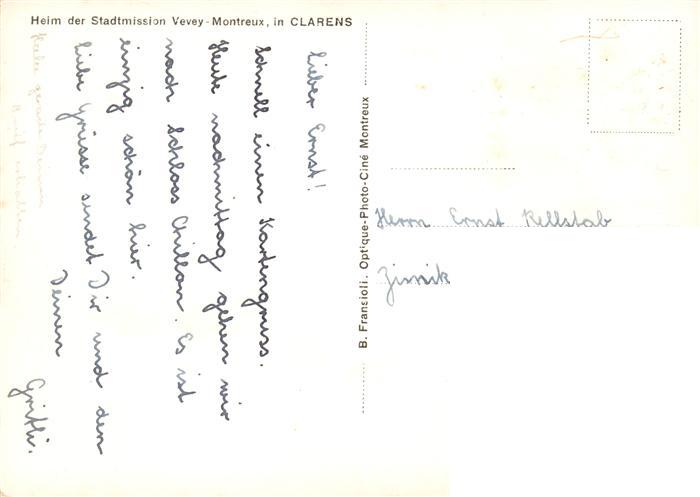 Heim der Stadtmission Vevey-Montreux, in CLARENS
Lieber Ernst!
Schnell einen Kartengruss.
Heute nachmittag gehen wir
nach Schloss Chillon. Es ist
einzig schön hier.
Liebe Grüsse sendet Dir und den
Deinen
Gritli.
Habe gerade Deinen
Brief erhalten
B. Fransioli. Optique-Photo-Ciné Montreux
Herrn Ernst Rellstab